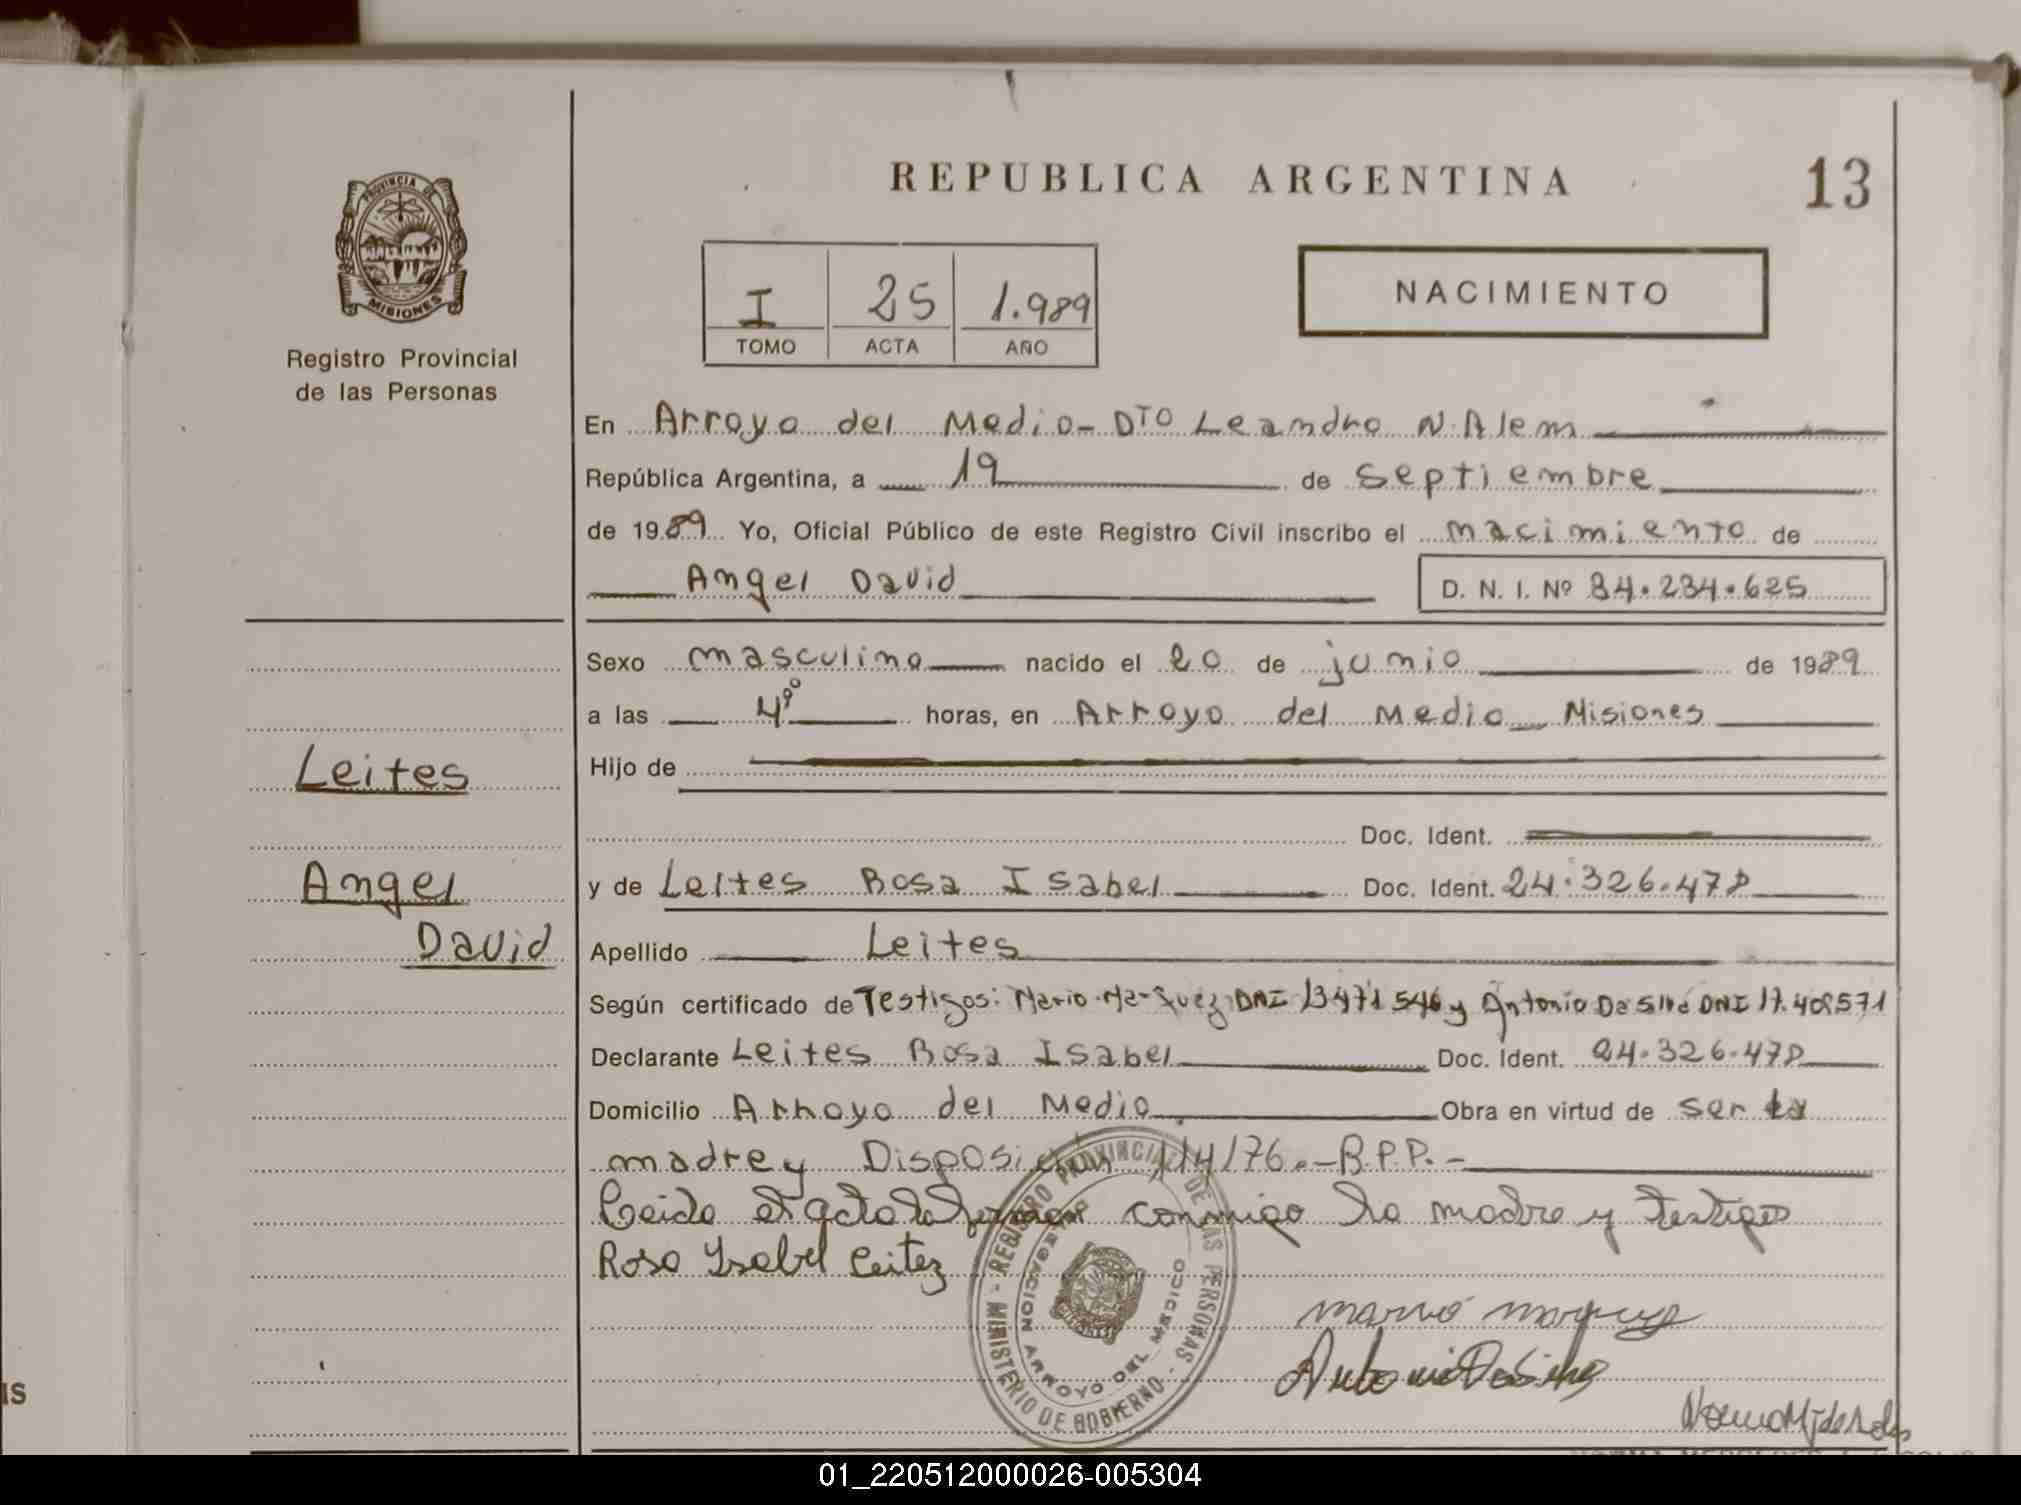 REPUBLICA ARGENTINA
13
PROVINCIA DE
MISIONES
Registro Provincial
de las Personas
I 25 1.989
TOMO ACTA AÑO
NACIMIENTO
En Arroyo del Medio - Dto Leandro N. Alem
República Argentina, a 19 de septiembre
de 1989 Yo, Oficial Público de este Registro Civil inscribo el nacimiento de
Angel David D. N. I. Nº 34.234.625
Sexo masculino nacido el 20 de junio de 1989
a las 4°° horas, en Arroyo del Medio - Misiones
Hijo de
Doc. Ident.
y de Leites Rosa Isabel Doc. Ident. 24.326.478
Leites
Angel
David
Apellido Leites
Según certificado de Testigos: Mario Marquez DNI 13471546 y Antonio Da Silva DNI 17.408571
Declarante Leites Rosa Isabel Doc. Ident. 24.326.478
Domicilio Arroyo del Medio Obra en virtud de ser la
madre y Disposición 114/76.-R.P.P.-
Leida el acta la conmigo la madre y testigos
Rosa Ysabel Leitez
REGISTRO PROVINCIAL DE LAS PERSONAS - MINISTERIO DE GOBIERNO -
ARROYO DEL MEDICO
Mario Marquez
Antonio Da Silva
IS
01_220512000026-005304